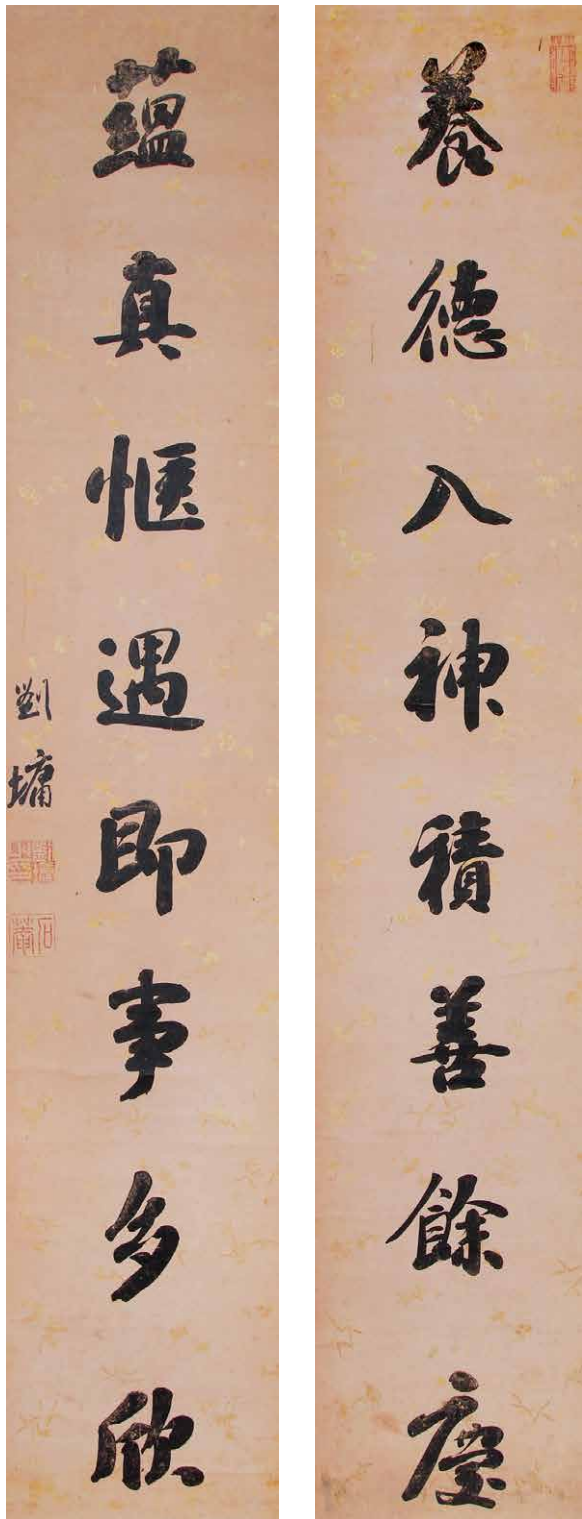 養德入神積善餘慶
蘊真愜遇即事多欣
劉墉
石菴